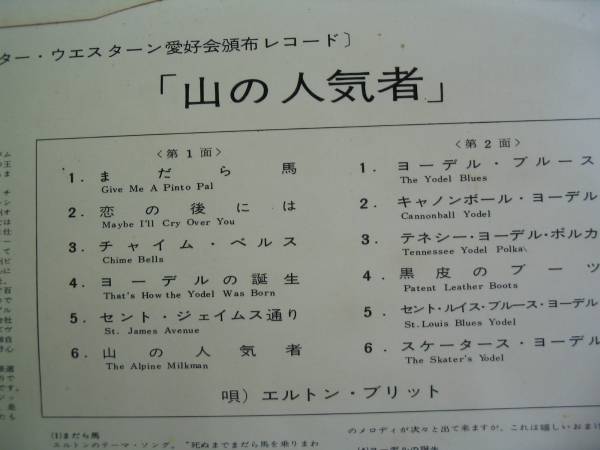 ター・ウエスターン愛好会頒布レコード〕
「山の人気者」
〈第1面〉
1. まだら馬
Give Me A Pinto Pal
2. 恋の後には
Maybe I'll Cry Over You
3. チャイム・ベルス
Chime Bells
4. ヨーデルの誕生
That's How the Yodel Was Born
5. セント・ジェイムス通り
St. James Avenue
6. 山の人気者
The Alpine Milkman
〈第2面〉
1. ヨーデル・ブルース
The Yodel Blues
2. キャノンボール・ヨーデル
Cannonball Yodel
3. テネシー・ヨーデル・ポルカ
Tennessee Yodel Polka
4. 黒皮のブーツ
Patent Leather Boots
5. セント・ルイス・ブルース・ヨーデル
St. Louis Blues Yodel
6. スケータース・ヨーデル
The Skater's Yodel
唄）エルトン・ブリット
(1)まだら馬
エルトンのテーマ・ソング。"死ぬまでまだら馬を乗りまわ
のメロディが次々と出て来ますが、これは嬉しいおま